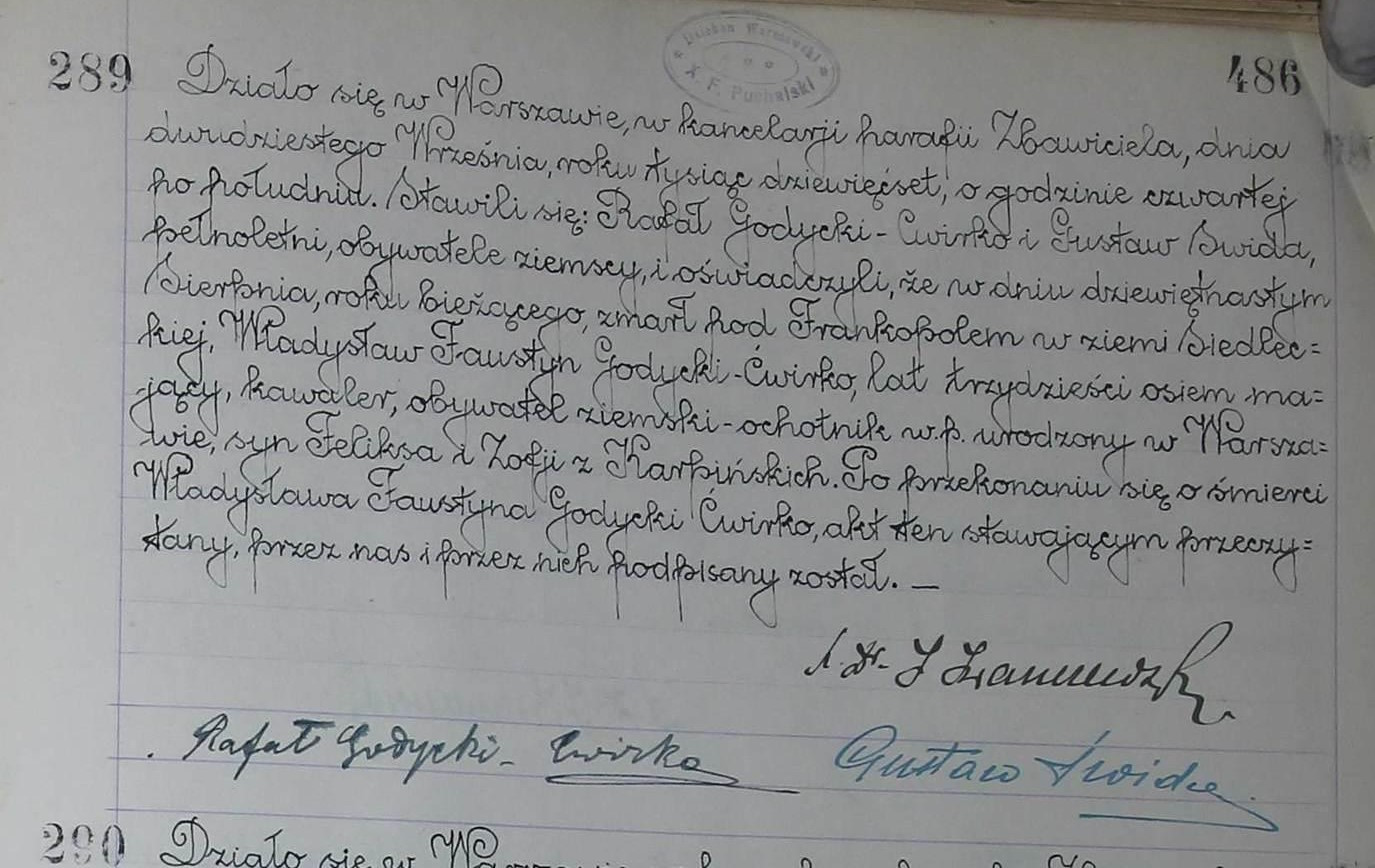 Dziekan Warszawski
X. F. Puchalski
289
486
Działo się w Warszawie, w kancelarji parafii Zbawiciela, dnia
dwudziestego Września, roku tysiąc dziewięćset, o godzinie czwartej
po południu. Stawili się: Rafał Godycki-Cwirko i Gustaw Swida,
pełnoletni, obywatele ziemscy, i oświadczyli, że w dniu dziewiętnastym
Sierpnia, roku bieżącego, zmarł pod Frankopolem w ziemi Siedlec=
kiej, Władysław Faustyn Godycki-Ćwirko, lat trzydzieści osiem ma=
jący, kawaler, obywatel ziemski-ochotnik w.p. urodzony w Warsza=
wie, syn Feliksa i Zofji z Karpińskich. Po przekonaniu się o śmierci
Władysława Faustyna Godycki Ćwirko, akt ten stawającym przeczy=
tany, przez nas i przez nich podpisany został. —
Rafał Godycki-Cwirko
Gustaw Świda
290
Działo się w